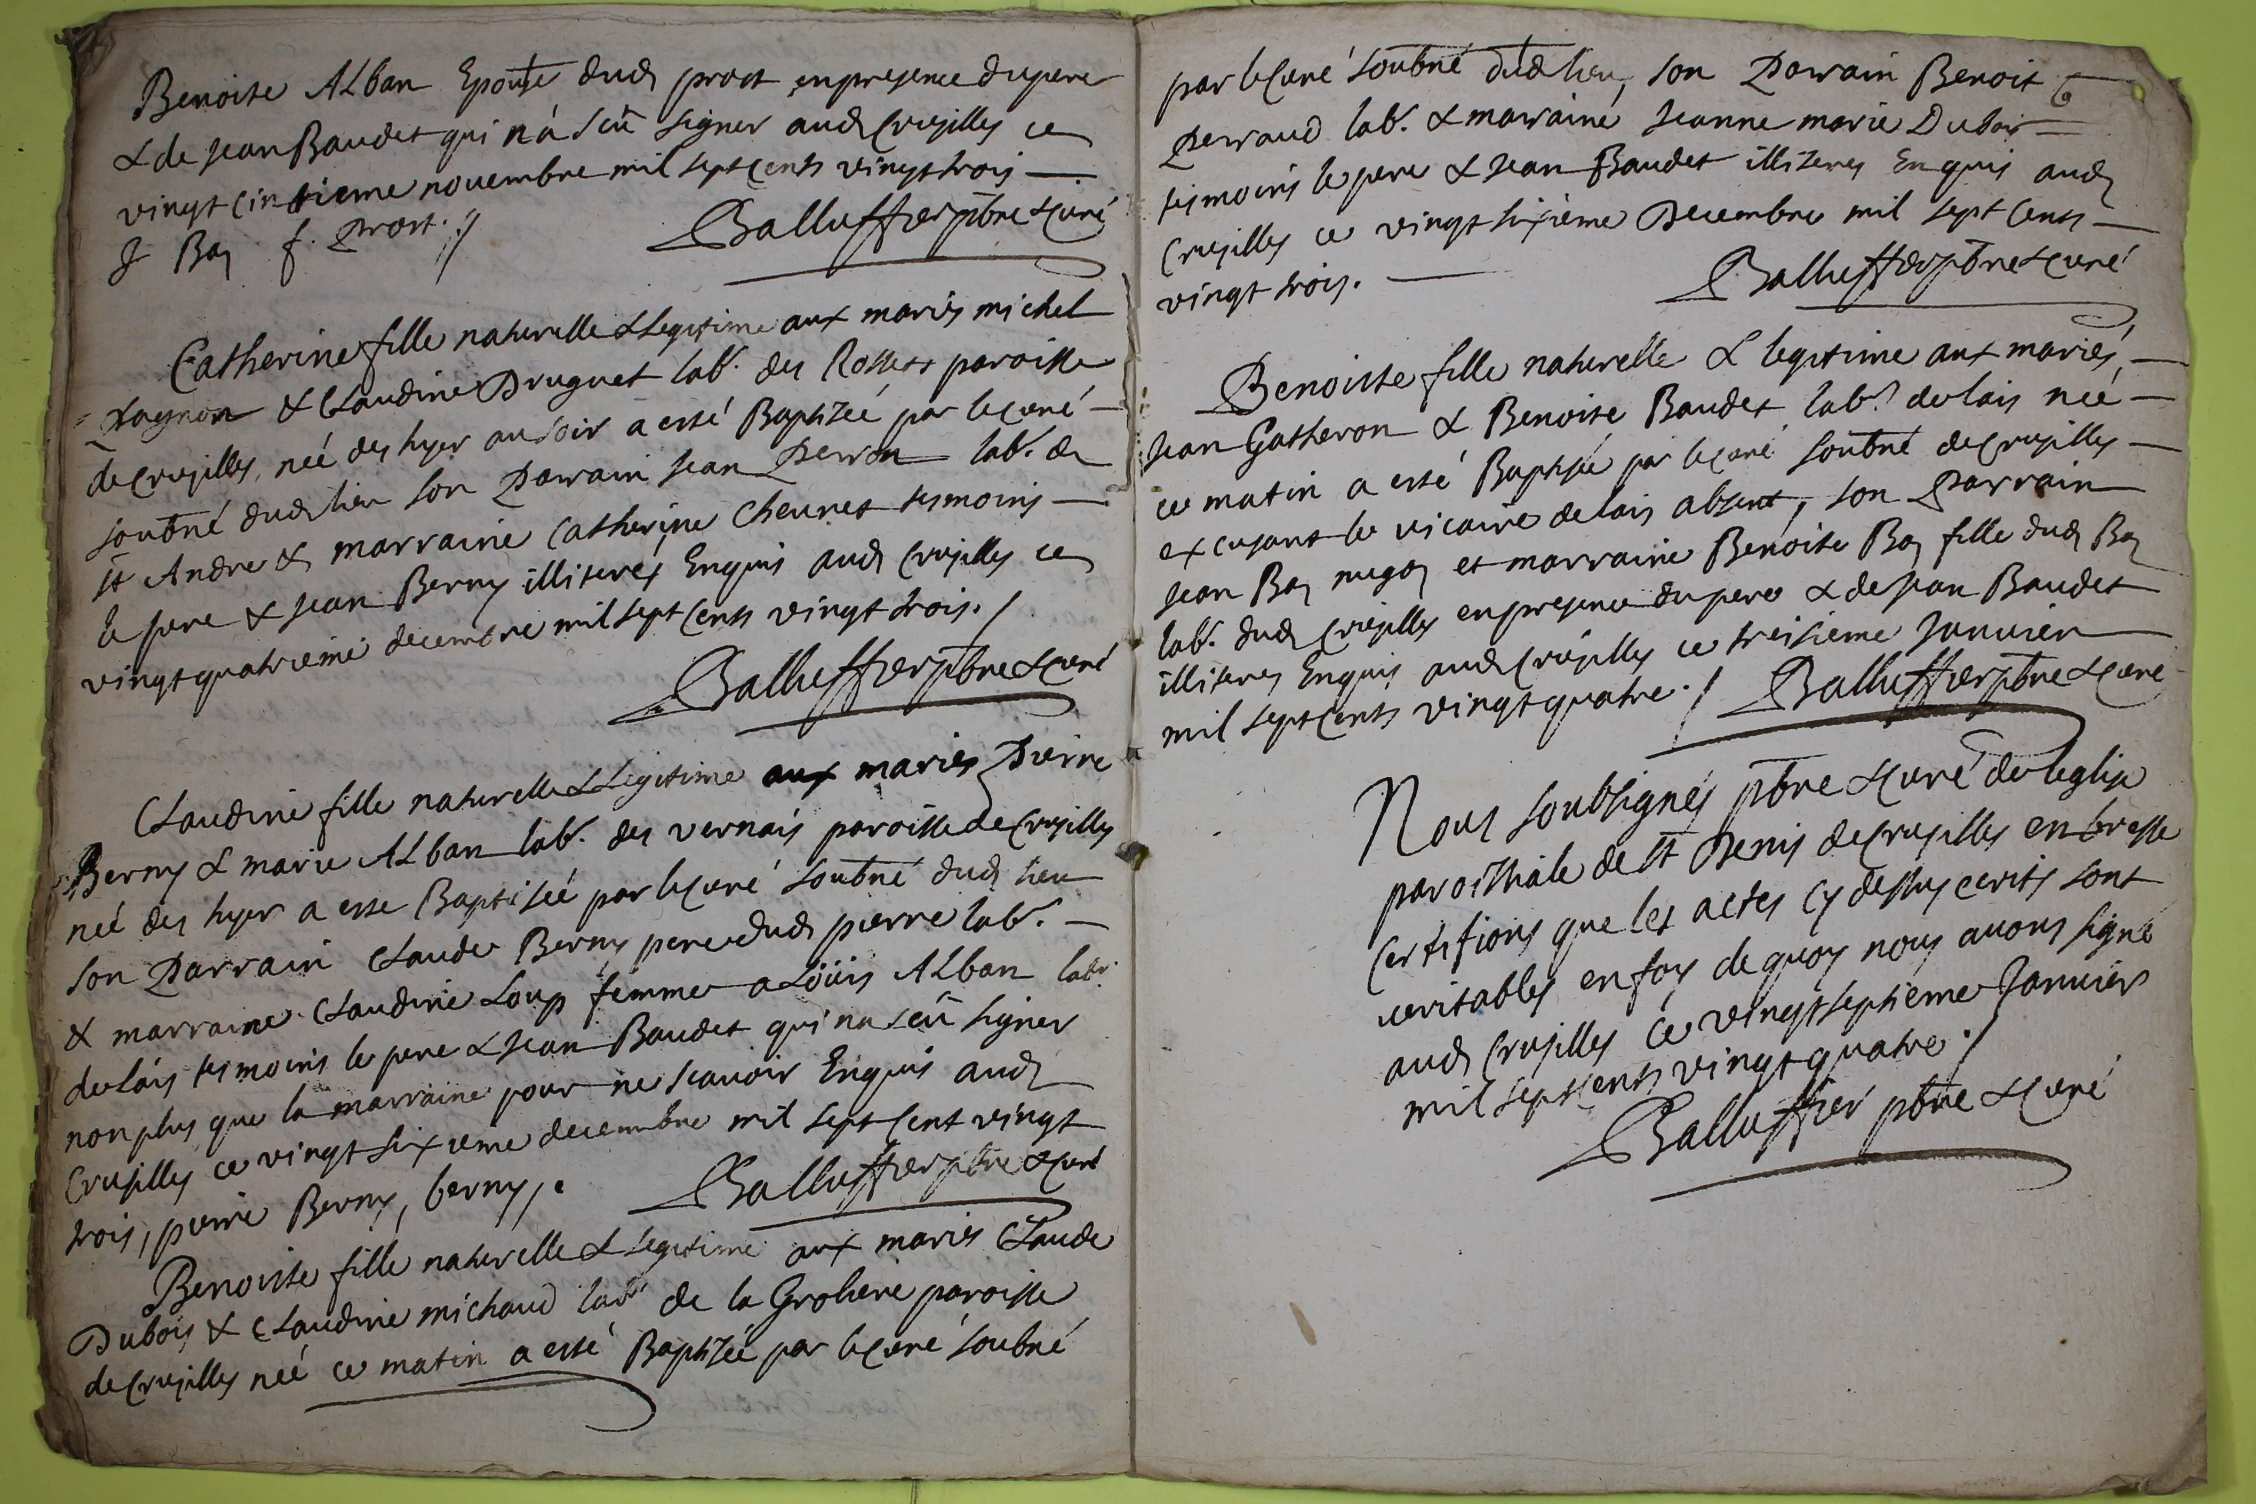 Benoite Alban Epouse dud prost en presence du pere
& de Jean Baudet qui n'a sçu signer aud Crusilles ce
vingt cinsieme novembre mil sept cents vingt trois
J Bay f. prost.
Balluffier pbre & curé
Catherine fille naturelle & legitime aux mariés michel
pagnon & Claudine Druguet lab. des Rossets paroisse
de Crusilles, née des hyer au soir a esté Baptizée par le curé
soubné dud lieu son Parrain Jean Perron lab. de
st Andre & marraine Catherine Cheunet tesmoins
le pere & Jean Berny illiterés Enquis aud Crusilles ce
vingt quatrieme decembre mil sept cents vingt trois.
Balluffier pbre & curé
Claudine fille naturelle & Legitime aux mariés Pierre
Berny & marie Alban lab. des vernais paroisse de Crusilles
née des hyer a esté Baptisée par le curé soubné dud lieu
son Parrain Claude Berny pere dud pierre lab.
& marraine Claudine Loup femme a Loüis Alban lab.
de lais tesmoins le pere & Jean Baudet qui na sçu signer
non plus que la marraine pour ne scavoir Enquis aud
Crusilles ce vingt sixieme decembre mil sept cent vingt
trois, pierre Berny, berny,
Balluffier pbre & curé
Benoiste fille naturelle & legitime aux mariés Claude
Dubois & Claudine michaud lab. de la Groliere paroisse
de Crusilles née ce matin a esté Baptizée par le curé soubné
par le curé soubné dud lieu, son Parrain Benoit
Perraud lab. & marraine Jeanne marie Dubois
tesmoins le pere & Jean Baudet illiteres Enquis aud
Crusilles ce vingt sixième Decembre mil sept cents
vingt trois.
Balluffier pbre & curé
Benoiste fille naturelle & legitime aux mariés,
Jean Gatheron & Benoite Baudet lab. de lais née
ce matin a esté Baptisée par le curé soubné de Crusilles
excusant le vicaire de lais absent, son Parrain
Jean Bay et marraine Benoite Bay fille dud Bay
lab. dud Crusilles en presence du pere & de Jean Baudet
illiteres Enquis aud Crusilles ce treisieme Janvier
mil sept cents vingt quatre.
Balluffier pbre & curé
Nous soubsignés pbre & curé de leglise
paroissiale de st Denis de Crusilles en bresse
Certifions que les actes cy dessus ecrits sont
veritables en foy de quoy nous avons signé
aud Crusilles ce vingt septieme Janvier
mil sept cents vingt quatre.
Balluffier pbre & curé